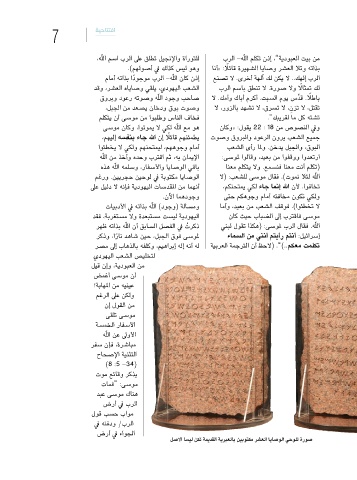 الافتتاحية
7
من بيت العبودية"، إذن تكلم الله- الرب
بذاته وتلا العشر وصايا الشهيرة قائلاً: بأنا
الرب إلهك.. لا يكن لك آلهة أخرى، لا تصنع
لك تمثالاً ولا صورة، لا تنطق باسم الرب
باطلاً، قدّس يوم السبت، أكرم أباك وأمك، لا
تقتل، لا تزن، لا تسرق، لا تشهد بالزور، لا
تشته كل ما لقريبك".
وفي النصوص من 18 : 22 يقول، «وكان
جميع الشعب يرون الرعود والبروق وصوت
البوق، والجبل يدخن، ولما رأى الشعب
ارتعدوا ووقفوا من بعيد، وقالوا لموسى:
(تكلم أنت معنا فنسمع، ولا يتكلم معنا
الله لئلا نموت)، فقال موسى للشعب: (لا
تخافوا، لأن الله إنما جاء لكي يمتحنكم،
ولكي تكون مخافته أمام وجوهكم حتى
لا تخطئوا)، فوقف الشعب من بعيد، وأما
موسى فاقترب إلى الضباب حيث كان
الله، فقال الرب لموسى: (هكذا تقول لبني
إسرائيل: أنتم رأيتم أنني من السماء
تكلمت معكم..)". (لاحظ أن الترجمة العربية
للتوراة والإنجيل تطلق على الرب اسم الله،
وهو ليس كذلك في أصولهم).
إذن كان الله- الرب موجودًا بذاته أمام
الشعب اليهودي، يلقي وصاياه العشر، وقد
صاحب وجود الله وصوته رعود وبروق
وصوت بوق ودخان يصعد من الجبل،
فخاف الناس وطلبوا من موسى أن يتكلم
هو مع الله لكي لا يموتوا، وكان موسى
يطمئنهم قائلاً إن الله جاء بنفسه إليهم،
أمام وجوههم، ليمتحنهم ولكي لا يخطئوا
الإيمان به، ثم اقترب وحده وأخذ من الله
باقي الوصايا والأسفار، وسلمه الله هذه
الوصايا مكتوبة في لوحين حجريين، ورغم
أنهما من المقدسات اليهودية فإنه لا دليل على
وجودهما الآن.
ومسألة (وجود) الله بذاته في الأدبيات
اليهودية ليست مستبعدة ولا مستغربة، فقد
ذكرتُ في الفصل السابق أن الله بذاته ظهر
لموسى فوق الجبل، حين شاهد نارًا، وذكر
له أنه إله إبراهيم، وكلفه بالذهاب إلى مصر
لتخليص الشعب اليهودي
من العبودية، وإن قيل
أن موسى أغمض
عينيه من المهابة؛
ولكن على الرغم
من القول إن
موسى تلقى
الأسفار الخمسة
الأولى من الله
مباشرة، فإن سفر
التثنية الإصحاح
(34– 5: 8)
يذكر وقائع موت
موسى: "فمات
هناك موسى عبد
الرب في أرض
موآب حسب قول
الرب/ ودفنه في
الجواء في أرض
صورة للوحي الوصايا العشر مكتوبين بالعبرية القديمة لكن ليسا الأصل